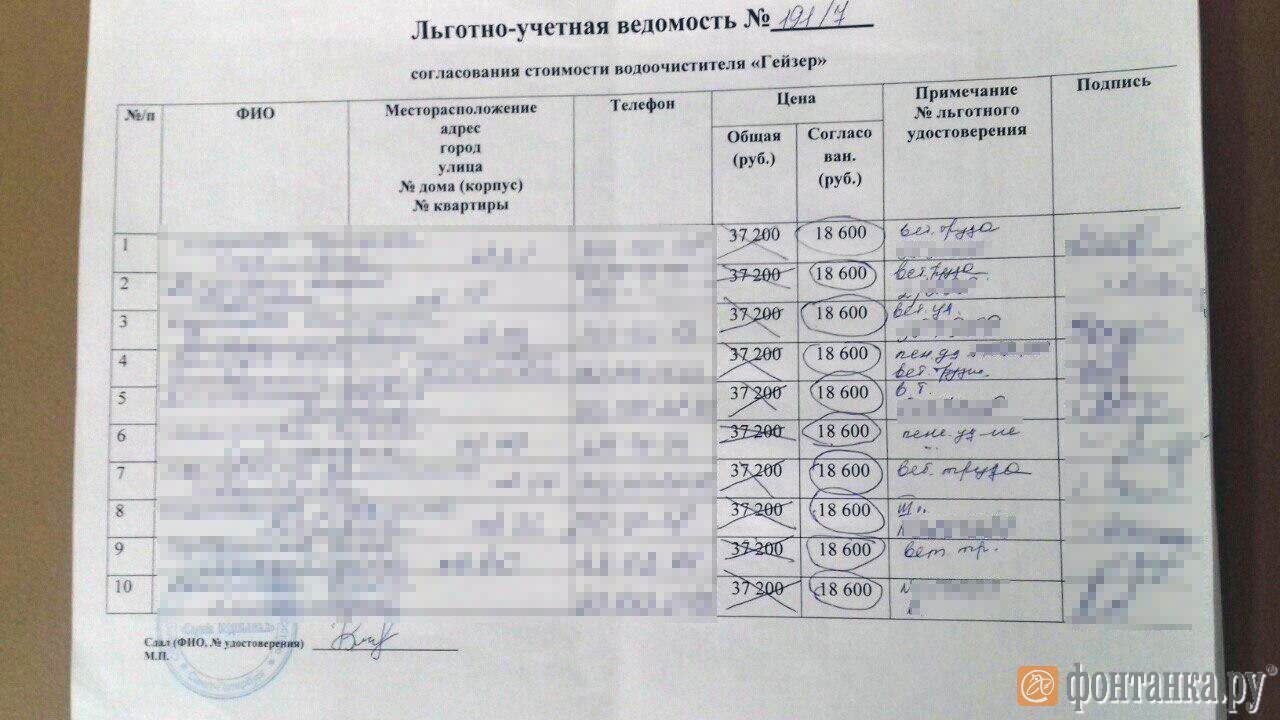 Льготно-учетная ведомость № 191/7
согласования стоимости водоочистителя «Гейзер»
№/п ФИО Месторасположение адрес город улица № дома (корпус) № квартиры Телефон Цена Примечание № льготного удостоверения Подпись
Общая (руб.) Согласо ван. (руб.)
1 37 200 18 600 вет. труда
2 37 200 18 600 вет. труда
3 37 200 18 600 вет. уд.
4 37 200 18 600 пен. уд
вет. труда
5 37 200 18 600 в. т.
6 37 200 18 600 пенс. уд-ие
7 37 200 18 600 вет. труда
8 37 200 18 600
9 37 200 18 600 вет. тр.
10 37 200 18 600
Сдал (ФИО, № удостоверения)
М.П.
Санкт-Петербург
фонтанка.ру